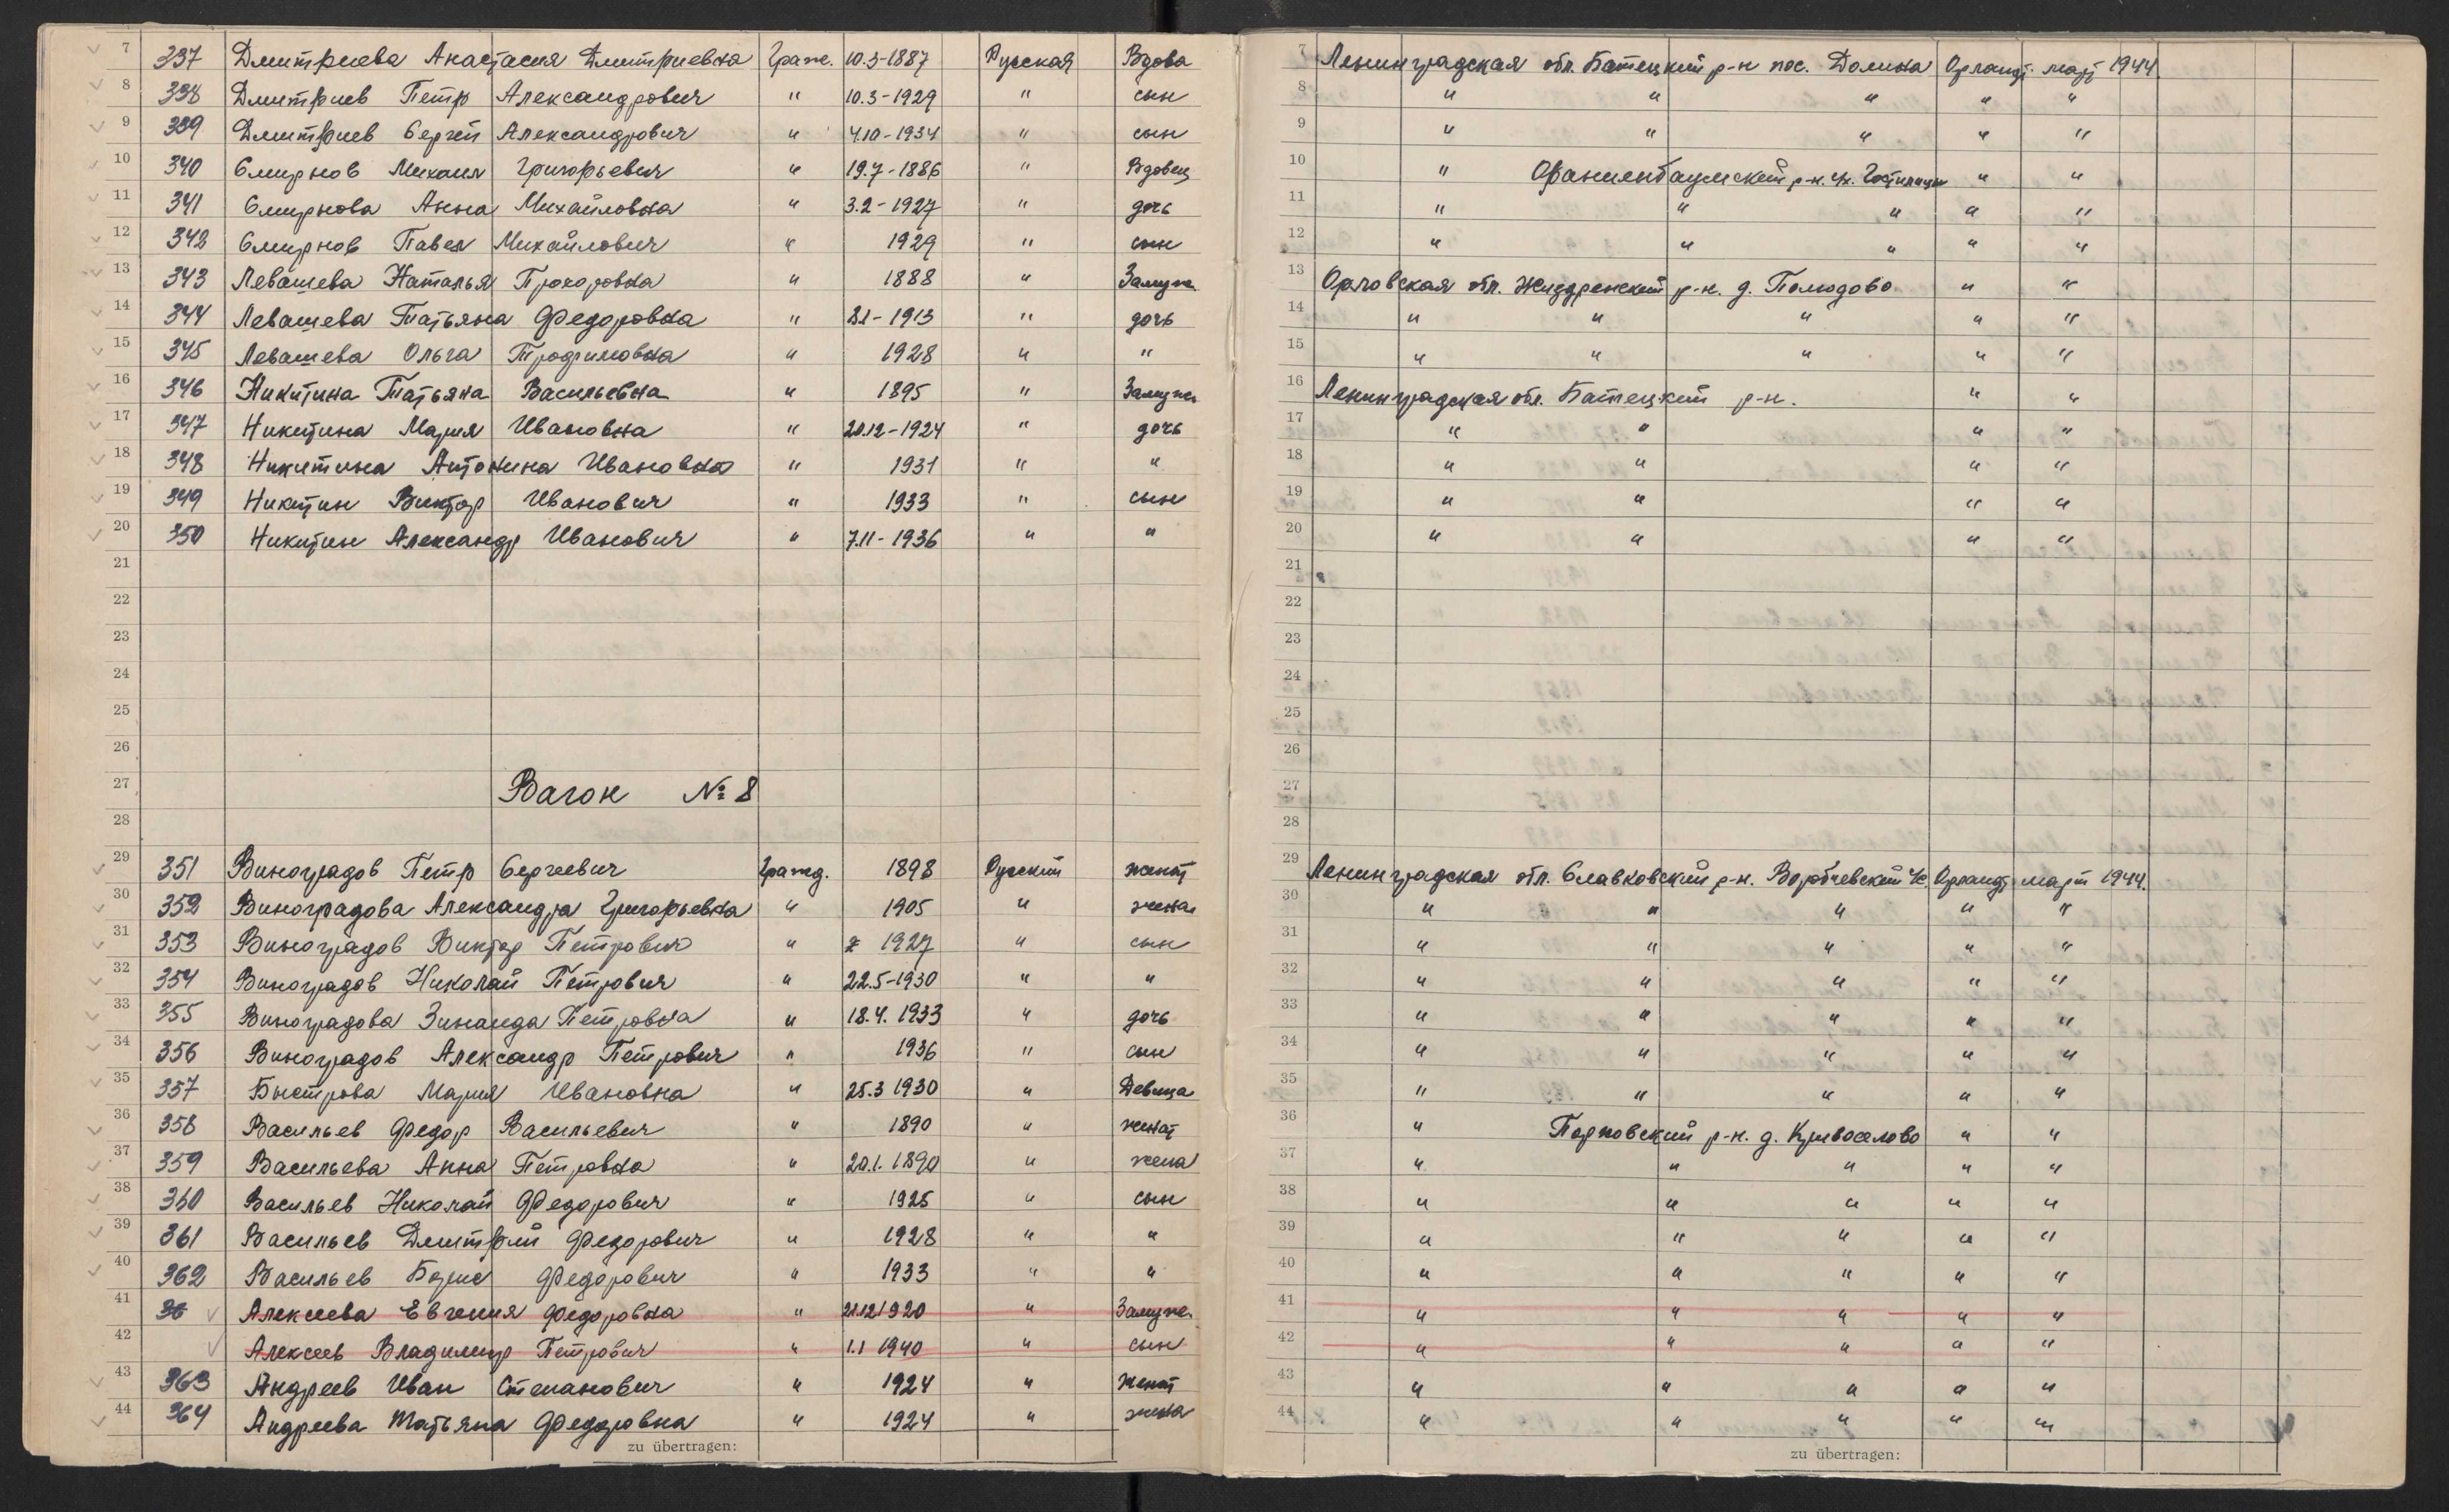 7 337 Дмитриева Анастасия Дмитриевна Граж. 10.3-1887 Русская Вдова
8 338 Дмитриев Петр Александрович " 10.3-1929 " сын
9 339 Дмитриев Сергей Александрович " 4.10-1934 " сын
10 340 Смирнов Михаил Григорьевич " 19.7-1886 " Вдовец
11 341 Смирнова Анна Михайловна " 3.2-1927 " дочь
12 342 Смирнов Павел Михайлович " 1929 " сын
13 343 Левашева Наталья Прохоровна " 1888 " Замужн.
14 344 Левашева Татьяна Федоровна " 2.1-1913 " дочь
15 345 Левашева Ольга Трофимовна " 1928 " "
16 346 Никитина Татьяна Васильевна " 1895 " Замужн.
17 347 Никитина Мария Ивановна " 20.12-1924 " дочь
18 348 Никитина Антонина Ивановна " 1931 " "
19 349 Никитин Виктор Иванович " 1933 " сын
20 350 Никитин Александр Иванович " 7.11-1936 " "
21
22
23
24
25
26
27 Вагон № 8
28
29 351 Виноградов Петр Сергеевич Гражд. 1898 Русский женат
30 352 Виноградова Александра Григорьевна " 1905 " жена
31 353 Виноградов Виктор Петрович " 1927 " сын
32 354 Виноградов Николай Петрович " 22.5-1930 " "
33 355 Виноградова Зинаида Петровна " 18.4.1933 " дочь
34 356 Виноградов Александр Петрович " 1936 " сын
35 357 Быстрова Мария Ивановна " 25.3 1930 " Девица
36 358 Васильев Федор Васильевич " 1890 " женат
37 359 Васильева Анна Петровна " 20.1.1890 " жена
38 360 Васильев Николай Федорович " 1925 " сын
39 361 Васильев Дмитрий Федорович " 1928 " "
40 362 Васильев Борис Федорович " 1933 " "
41 36 Алексеева Евгения Федоровна " 21.12.1920 " Замужн.
42 Алексеев Владимир Петрович " 1.1 1940 " сын
43 363 Андреев Иван Степанович " 1924 " женат
44 364 Андреева Татьяна Федоровна " 1924 " жена
zu übertragen:
7 Ленинградская обл. Батецкий р-н пос. Долина Орланд. март 1944
8 " " " " "
9 " " " " "
10 " Ораниенбаумский р-н. ч/х. Гостилицы " "
11 " " " " "
12 " " " " "
13 Орловская обл. Жиздренский р-н. д. Полюдово " "
14 " " " " "
15 " " " " "
16 Ленинградская обл. Батецкий р-н. " "
17 " " " "
18 " " " "
19 " " " "
20 " " " "
21
22
23
24
25
26
27
28
29 Ленинградская обл. Славковский р-н. Воробьевский ч/с Орланд. март 1944.
30 " " " " "
31 " " " " "
32 " " " " "
33 " " " " "
34 " " " " "
35 " " " " "
36 " Порховский р-н. д. Кривоселово " "
37 " " " " "
38 " " " " "
39 " " " " "
40 " " " " "
41 " " " " "
42 " " " " "
43 " " " " "
44 " " " " "
zu übertragen: